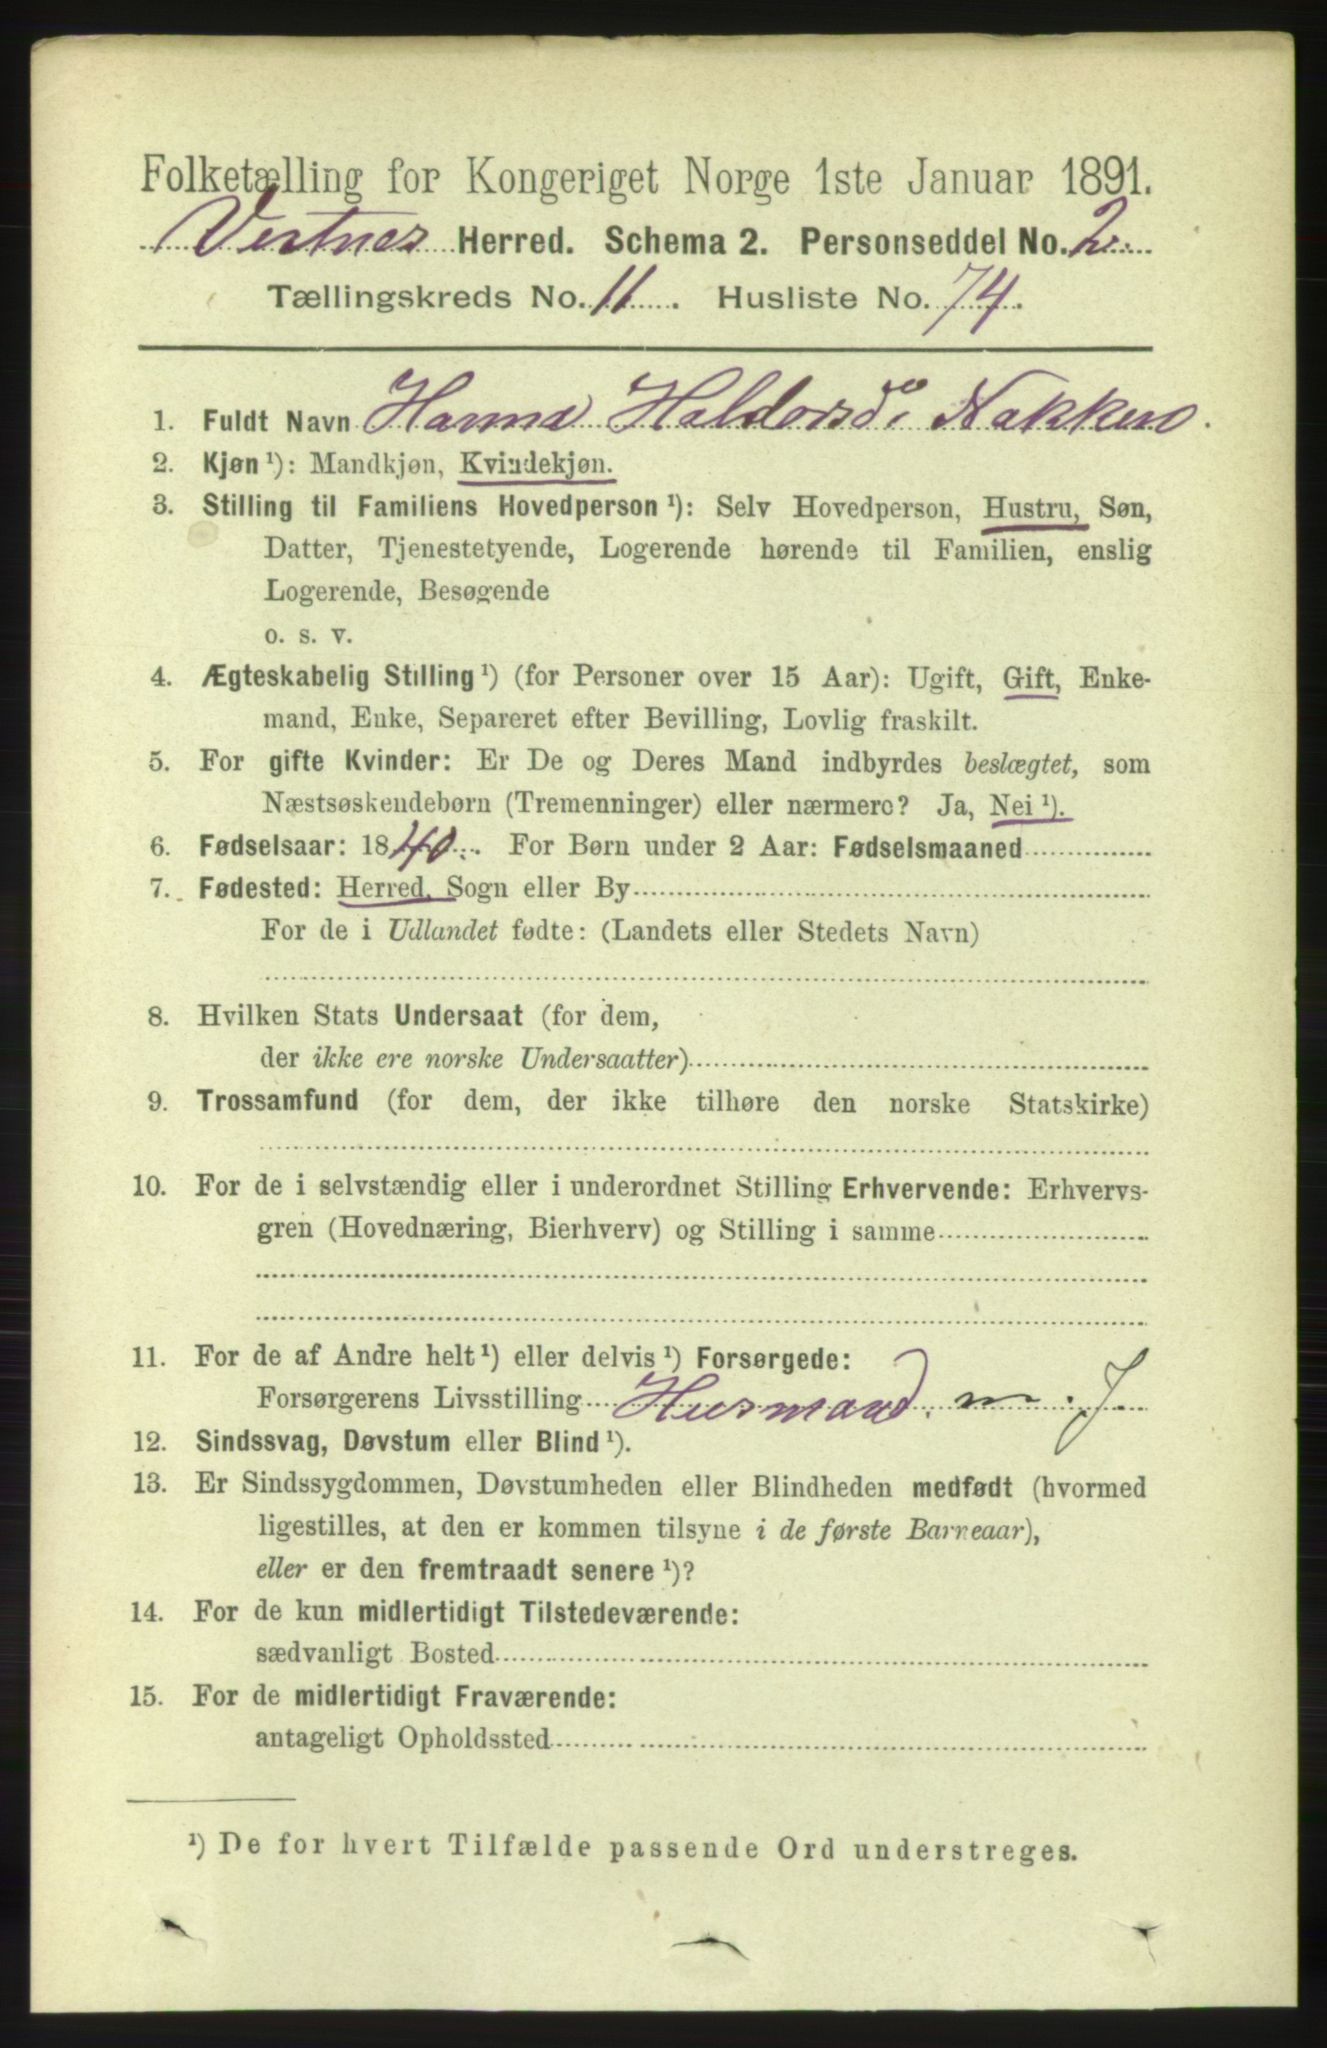 Folketælling for Kongeriget Norge 1ste Januar 1891.
Vestnes Herred. Schema 2. Personseddel No. 2.
Tællingskreds No. 11. Husliste No. 74.
1. Fuldt Navn Hanna Haldorsd. Nakken.
2. Kjøn ¹): Mandkjøn, Kvindekjøn.
3. Stilling til Familiens Hovedperson ¹): Selv Hovedperson, Hustru, Søn,
Datter, Tjenestetyende, Logerende hørende til Familien, enslig
Logerende, Besøgende
o. s. v.
4. Ægteskabelig Stilling ¹) (for Personer over 15 Aar): Ugift, Gift, Enke-
mand, Enke, Separeret efter Bevilling, Lovlig fraskilt.
5. For gifte Kvinder: Er De og Deres Mand indbyrdes beslægtet, som
Næstsøskendebørn (Tremenninger) eller nærmere? Ja, Nei ¹).
6. Fødselsaar: 1840. For Børn under 2 Aar: Fødselsmaaned
7. Fødested: Herred, Sogn eller By
For de i Udlandet fødte: (Landets eller Stedets Navn)
8. Hvilken Stats Undersaat (for dem,
der ikke ere norske Undersaatter)
9. Trossamfund (for dem, der ikke tilhøre den norske Statskirke)
10. For de i selvstændig eller i underordnet Stilling Erhvervende: Erhvervs-
gren (Hovednæring, Bierhverv) og Stilling i samme
11. For de af Andre helt ¹) eller delvis ¹) Forsørgede:
Forsørgerens Livsstilling Husmand. m. J.
12. Sindssvag, Døvstum eller Blind ¹).
13. Er Sindssygdommen, Døvstumheden eller Blindheden medfødt (hvormed
ligestilles, at den er kommen tilsyne i de første Barneaar),
eller er den fremtraadt senere ¹)?
14. For de kun midlertidigt Tilstedeværende:
sædvanligt Bosted
15. For de midlertidigt Fraværende:
antageligt Opholdssted
¹) De for hvert Tilfælde passende Ord understreges.